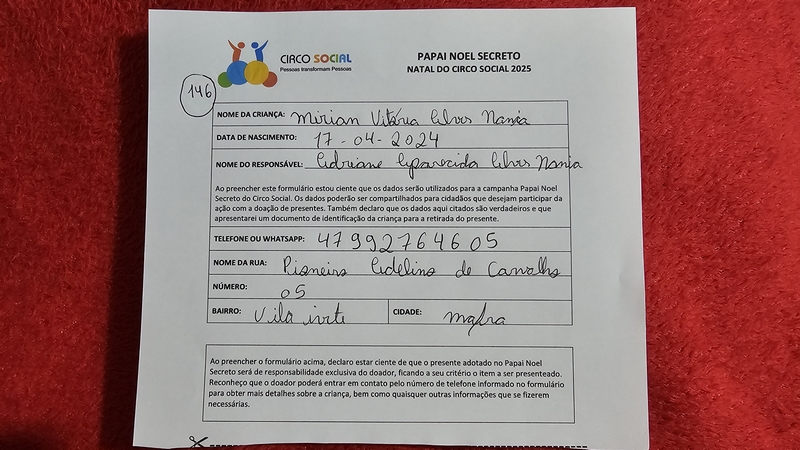 CIRCO SOCIAL
Pessoas transformam Pessoas
PAPAI NOEL SECRETO
NATAL DO CIRCO SOCIAL 2025
146
NOME DA CRIANÇA: Mirian Vitória Alves Nania
DATA DE NASCIMENTO: 17-04-2024
NOME DO RESPONSÁVEL: Adriane Aparecida Alves Nania
Ao preencher este formulário estou ciente que os dados serão utilizados para a campanha Papai Noel
Secreto do Circo Social. Os dados poderão ser compartilhados para cidadãos que desejam participar da
ação com a doação de presentes. Também declaro que os dados aqui citados são verdadeiros e que
apresentarei um documento de identificação da criança para a retirada do presente.
TELEFONE OU WHATSAPP: 47992764605
NOME DA RUA: Adelino de Carvalho
NÚMERO: 05
BAIRRO: Vila ivete CIDADE: mafra
Ao preencher o formulário acima, declaro estar ciente de que o presente adotado no Papai Noel
Secreto será de responsabilidade exclusiva do doador, ficando a seu critério o item a ser presenteado.
Reconheço que o doador poderá entrar em contato pelo número de telefone informado no formulário
para obter mais detalhes sobre a criança, bem como quaisquer outras informações que se fizerem
necessárias.